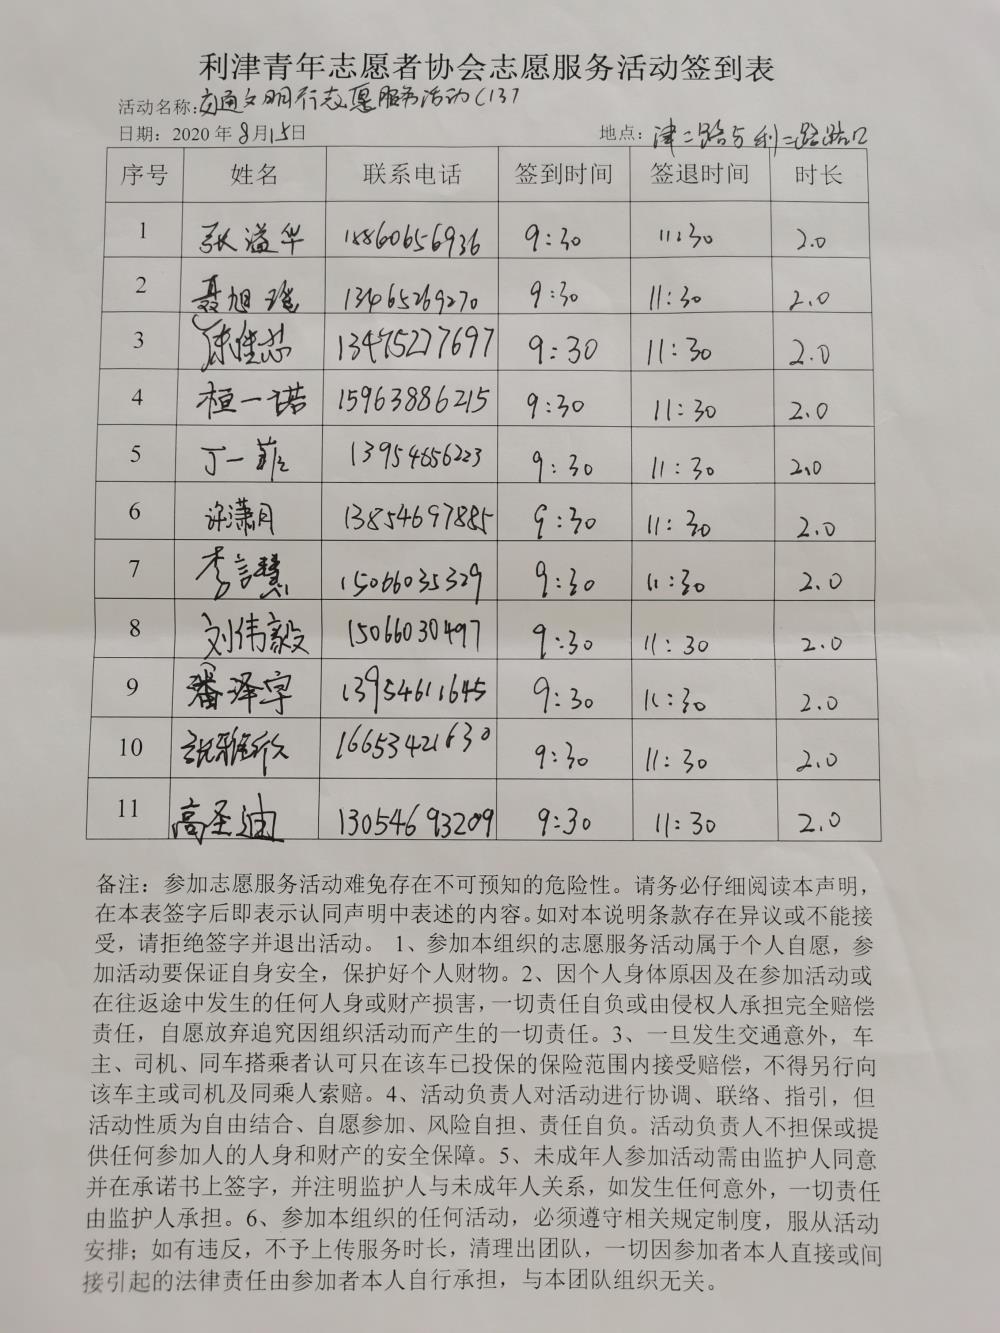 利津青年志愿者协会志愿服务活动签到表
活动名称:交通文明行志愿服务活动(13)
日期：2020年8月15日 地点：津二路与利二路路口
序号 姓名 联系电话 签到时间 签退时间 时长
1 张溢华 18860656936 9:30 11:30 2.0
2 聂旭瑶 13465269270 9:30 11:30 2.0
3 陈佳芯 13475277697 9:30 11:30 2.0
4 桓一诺 15963886215 9:30 11:30 2.0
5 丁一菲 13954656223 9:30 11:30 2.0
6 许潇月 13854697885 9:30 11:30 2.0
7 李言慧 15066035329 9:30 11:30 2.0
8 刘伟毅 15066030497 9:30 11:30 2.0
9 潘泽宇 13954611645 9:30 11:30 2.0
10 16653421630 9:30 11:30 2.0
11 高圣迪 13054693209 9:30 11:30 2.0
备注：参加志愿服务活动难免存在不可预知的危险性。请务必仔细阅读本声明，
在本表签字后即表示认同声明中表述的内容。如对本说明条款存在异议或不能接
受，请拒绝签字并退出活动。 1、参加本组织的志愿服务活动属于个人自愿，参
加活动要保证自身安全，保护好个人财物。2、因个人身体原因及在参加活动或
在往返途中发生的任何人身或财产损害，一切责任自负或由侵权人承担完全赔偿
责任，自愿放弃追究因组织活动而产生的一切责任。3、一旦发生交通意外，车
主、司机、同车搭乘者认可只在该车已投保的保险范围内接受赔偿，不得另行向
该车主或司机及同乘人索赔。4、活动负责人对活动进行协调、联络、指引，但
活动性质为自由结合、自愿参加、风险自担、责任自负。活动负责人不担保或提
供任何参加人的人身和财产的安全保障。5、未成年人参加活动需由监护人同意
并在承诺书上签字，并注明监护人与未成年人关系，如发生任何意外，一切责任
由监护人承担。6、参加本组织的任何活动，必须遵守相关规定制度，服从活动
安排；如有违反，不予上传服务时长，清理出团队，一切因参加者本人直接或间
接引起的法律责任由参加者本人自行承担，与本团队组织无关。